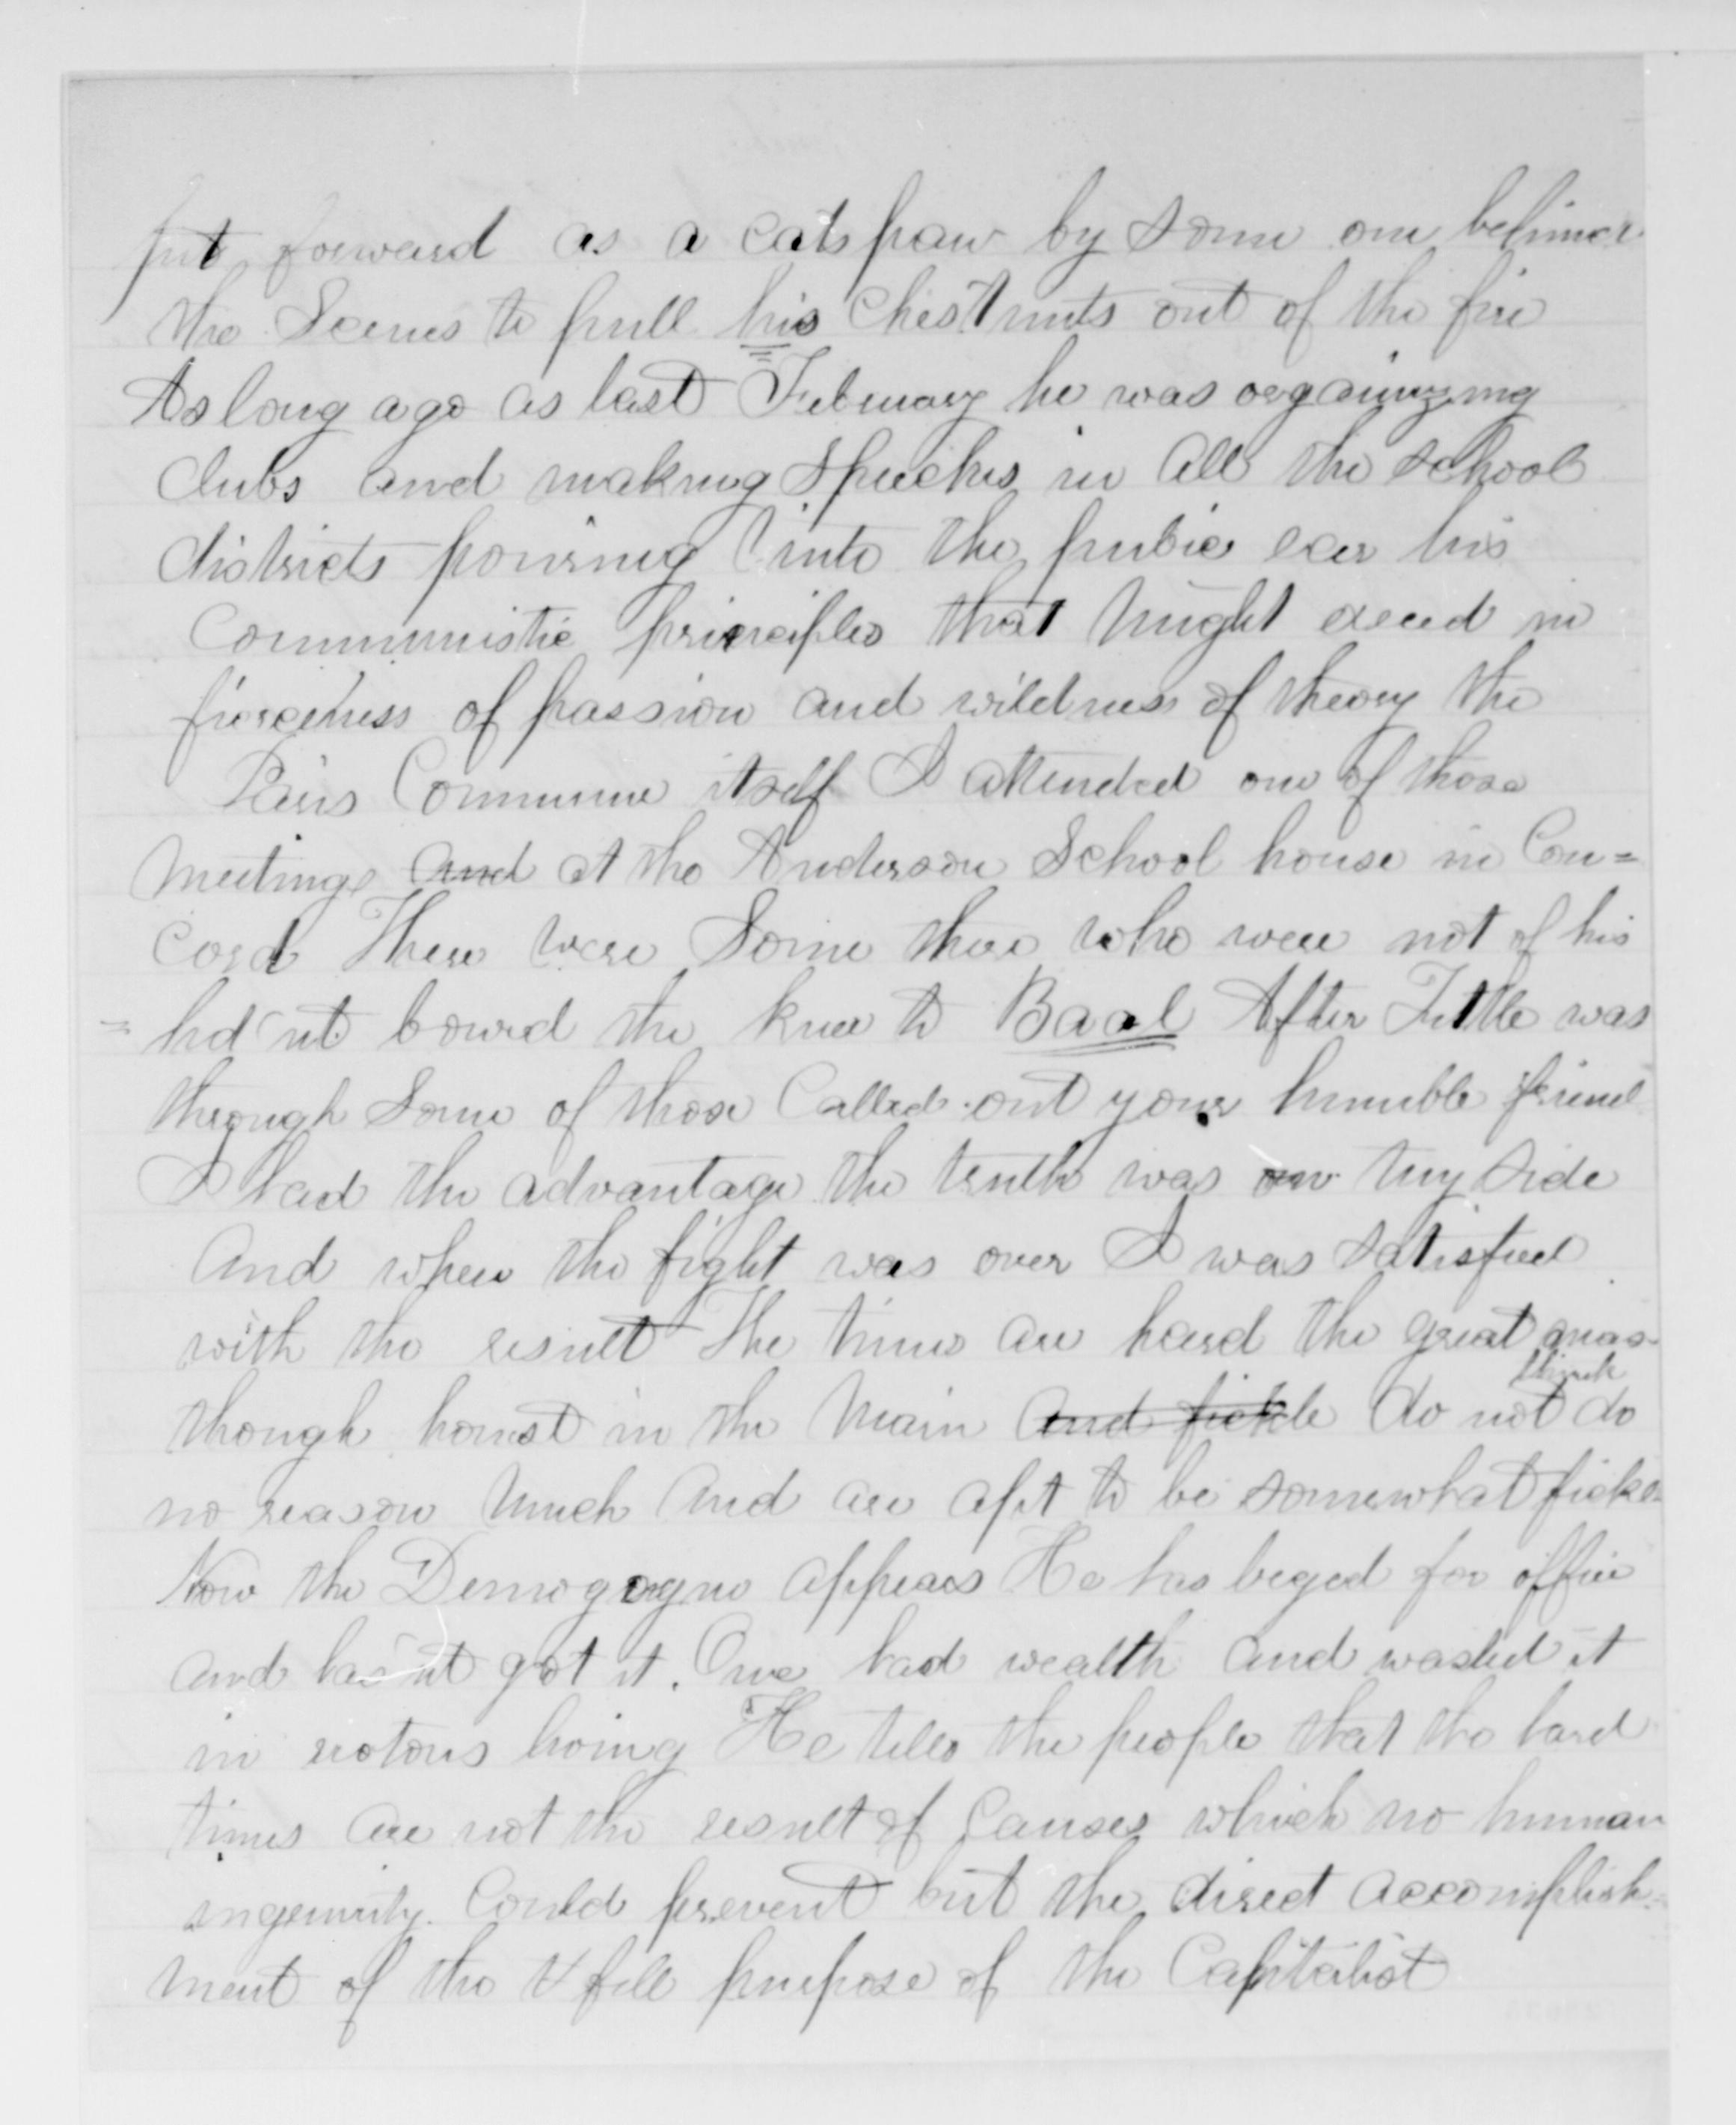 put forward as a cats paw by some one behind
the Scenes to pull his chestnuts out of the fire
As long ago as last February he was organizing
Clubs and making Speeches in all the school
districts pouring into the public ear his
Communistic principles that might exceed in
fierceness of passion and wildness of theory the
Paris Commune itself I attended one of those
meetings and at the Anderson School house in Con=
cord There were Some there who were not of his
= hd'nt bowed the knee to Baal After Tuttle was
through Some of those Called out your humble friend
I had the advantage the truth was on my side
And when the fight was over I was satisfied
with the result The times are hard the great mas-
think
though honest in the main and fickle do not do
no reason much and are apt to be somewhat fickle
Now the Demogogue appears He has beged for office
and has'nt got it. Once had wealth and wasted it
in riotous living He tells the people that the hard
times are not the result of Causes which no human
ingenuity Could prevent but the direct accomplish=
ment of the fell purpose of the Capitalist